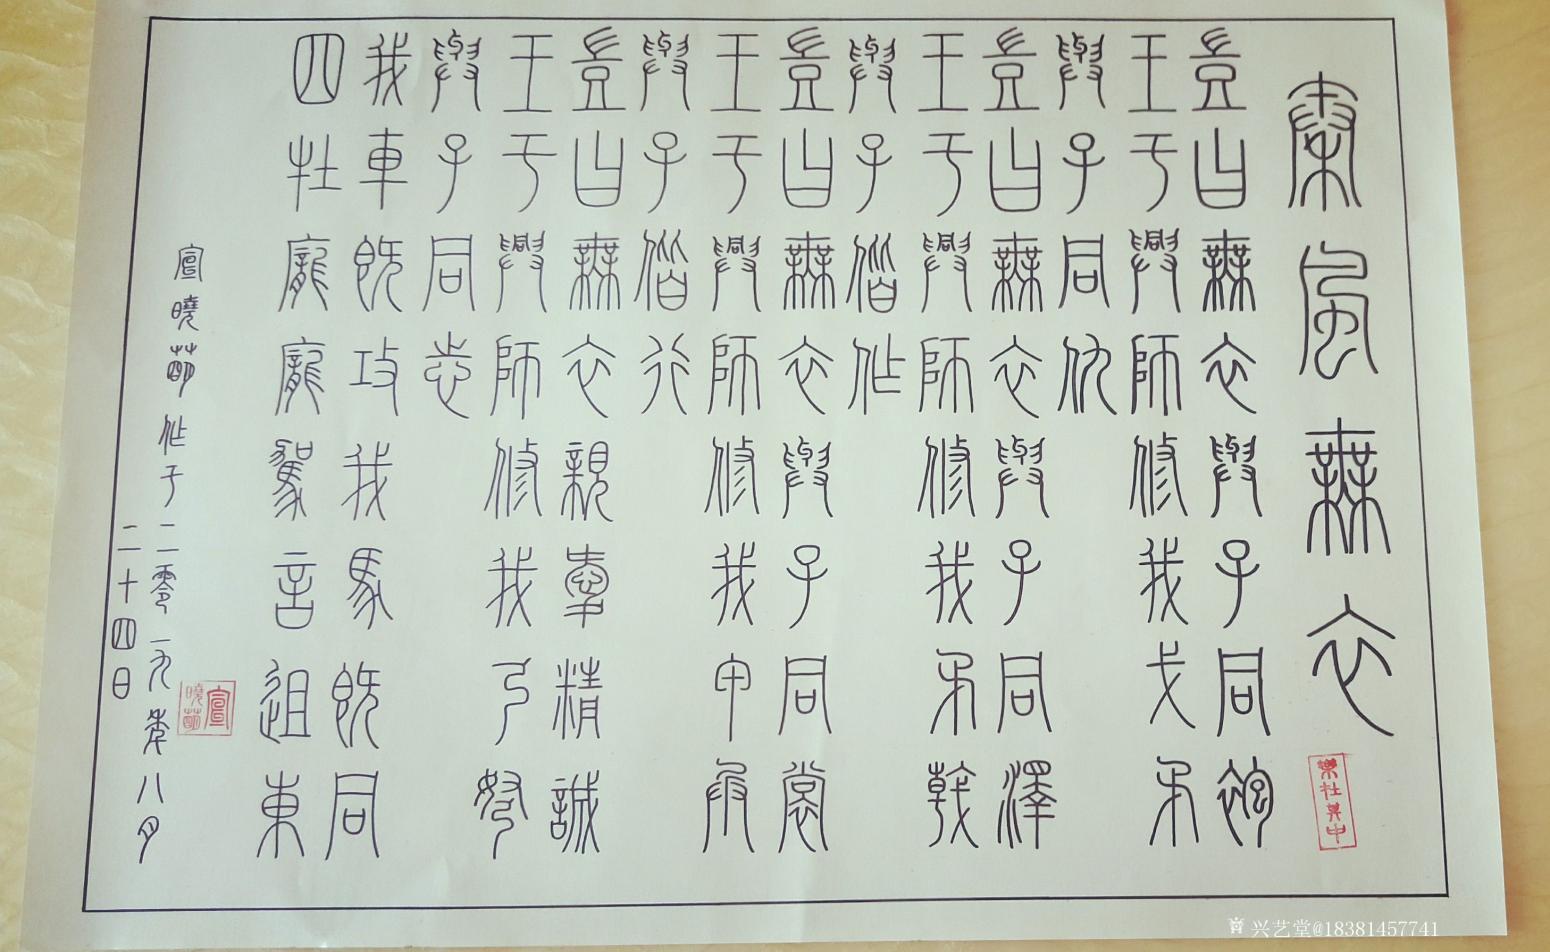 秦風無衣
樂在其中
豈曰無衣與子同袍
王于興師修我戈矛
與子同仇
豈曰無衣與子同澤
王于興師修我矛戟
與子偕作
豈曰無衣與子同裳
王于興師修我甲兵
與子偕行
豈曰無衣親精誠
王于興師修我弓弩
與子同志
我車既攻我馬既同
四牡龐龐駕言徂東
宣曉萌作于二零一九年八月
二十四日
宣曉萌
兴艺堂@18381457741